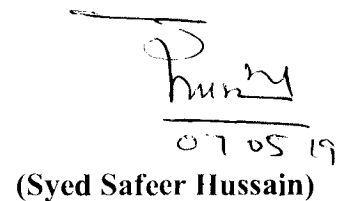 07 05 19
(Syed Safeer Hussain)